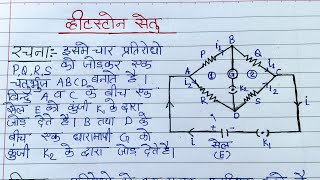 व्हीटस्टोन सेतु
रचना:- इसमें चार प्रतिरोधो
P,Q,R,S को जोड़कर एक
चतुर्भुज ABCD बनाते हैं।
बिन्दु A व C के बीच एक
सेल E को कुंजी K₁ के द्वारा
जोड़ देते हैं। B तथा D के
बीच एक धारामापी G को
कुंजी K₂ के द्वारा जोड़ देते हैं।
B
P
Q
i₁
A
C
G
1
2
K₂
R
S
i₂
D
i
i
सेल
(E)
K₁